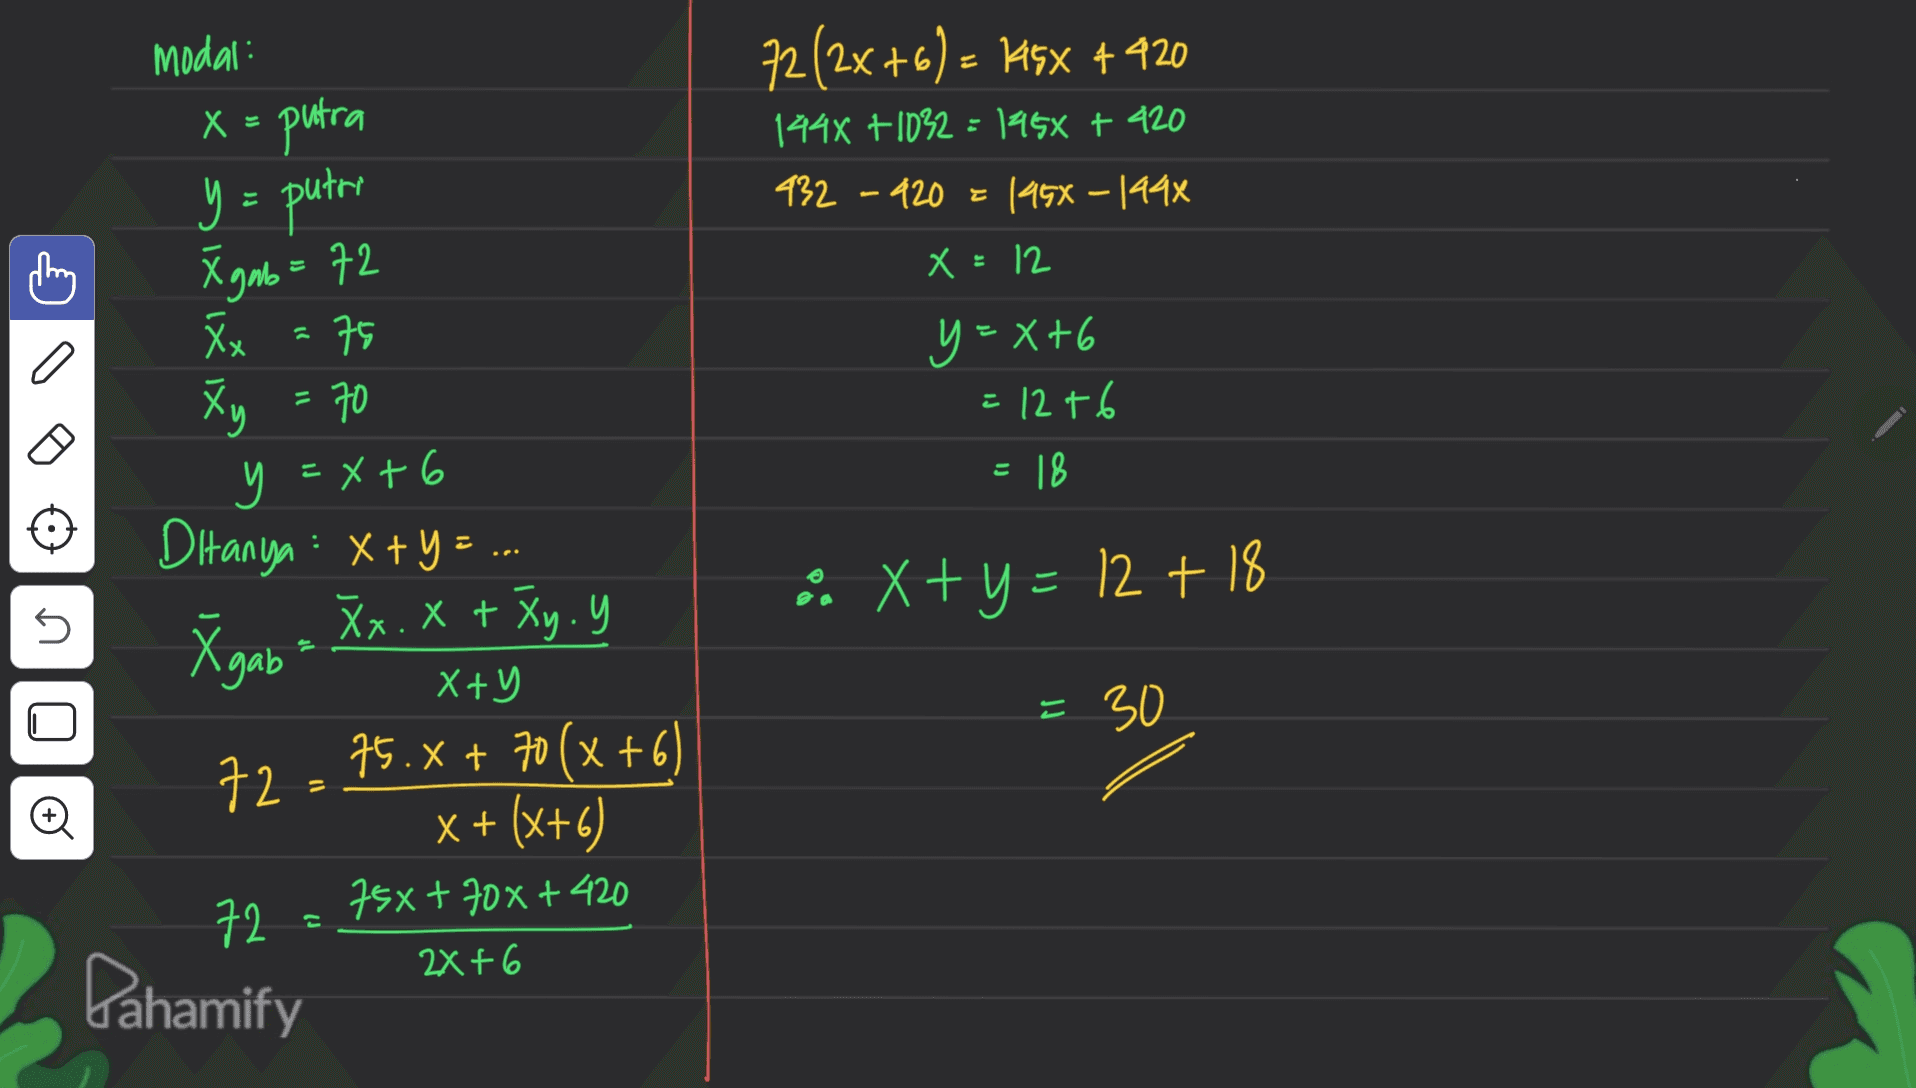 modal:
x = putra
y = putri
x̄ gab = 72
x̄x = 75
x̄y = 70
y = x + 6
Ditanya : x + y = ...
x̄ gab = x̄x . x + x̄y . y
x + y
72 = 75 . x + 70 (x + 6)
x + (x+6)
72 = 75x + 70x + 420
2x + 6
72 (2x + 6) = 145x + 420
144x + 1032 = 145x + 420
432 - 420 = 145x - 144x
x = 12
y = x + 6
= 12 + 6
= 18
∴ x + y = 12 + 18
= 30
Pahamify